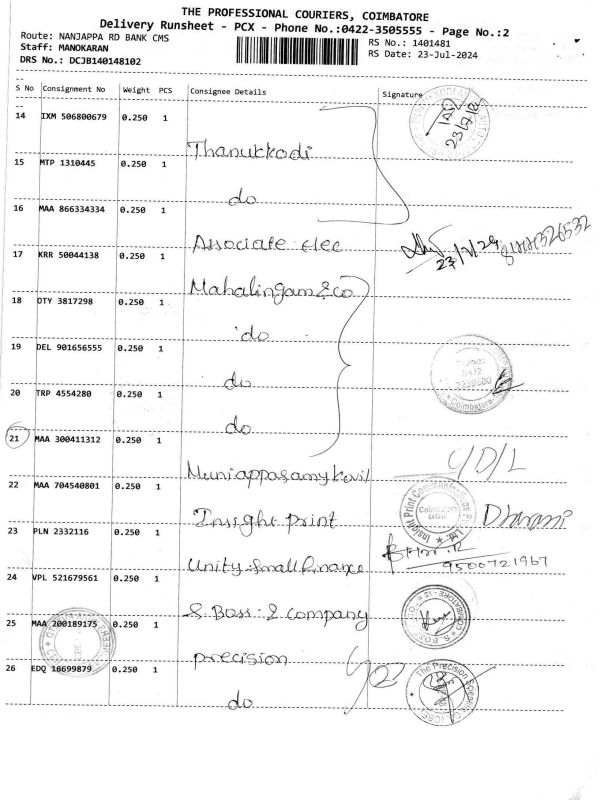 THE PROFESSIONAL COURIERS, COIMBATORE
Delivery Runsheet - PCX - Phone No.:0422-3505555 - Page No.:2
Route: NANJAPPA RD BANK CMS
RS No.: 1401481
Staff: MANOKARAN
RS Date: 23-Jul-2024
DRS No.: DCJB140148102
S No Consignment No Weight PCS Consignee Details Signature
14 IXM 506800679 0.250 1
Thanukkodi
15 MTP 1310445 0.250 1
do
16 MAA 866334334 0.250 1
Associate elec
23/7/24
17 KRR 50044138 0.250 1
Mahalingam & co
18 OTY 3817298 0.250 1
do
19 DEL 901656555 0.250 1
do
20 TRP 4554280 0.250 1
do
Coimbatore
21 MAA 300411312 0.250 1
Muniappasamy kovil
22 MAA 704540801 0.250 1
Insight print
Insight Print
Coimbatore
Dharani
23 PLN 2332116 0.250 1
Unity small finance
9500721967
24 VPL 521679561 0.250 1
S Boss & company
25 MAA 200189175 0.250 1
precision
26 EDQ 16699879 0.250 1
do
The Precision